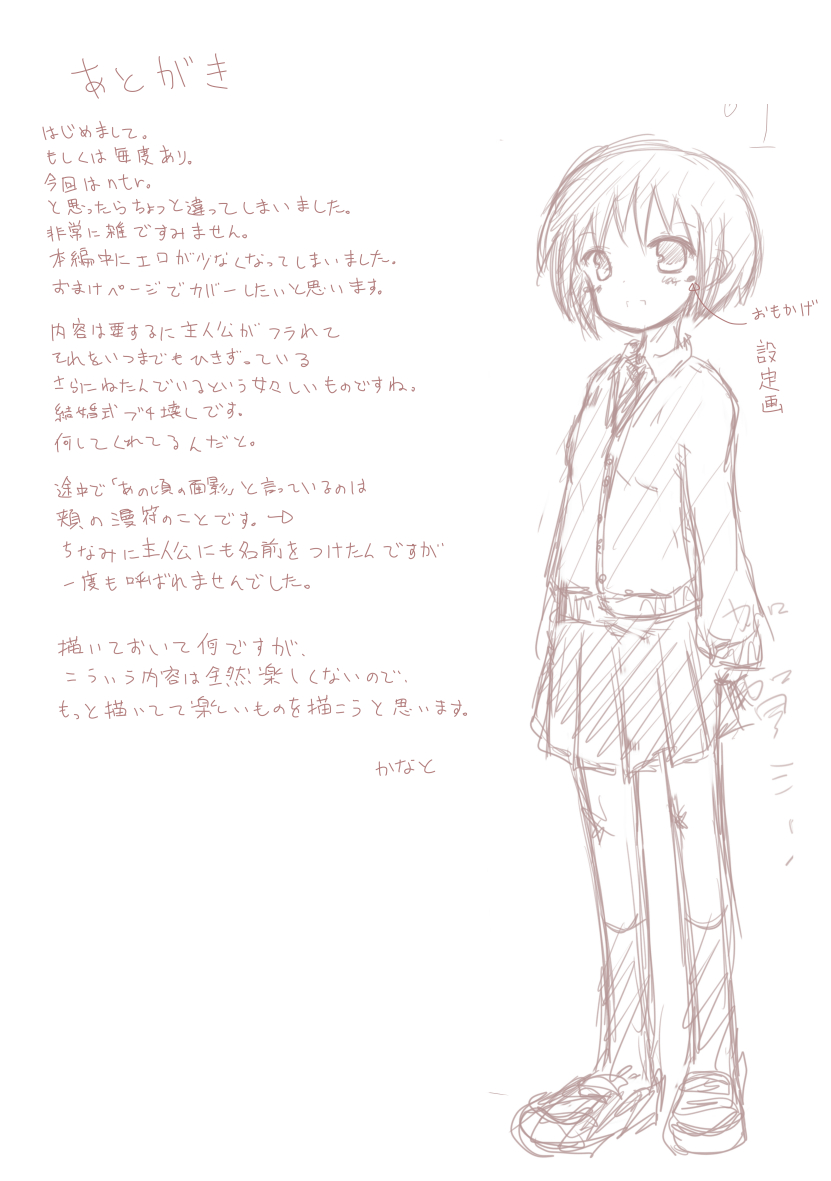 あとがき
はじめまして。
もしくは毎度あり。
今回はntr。
と思ったらちょっと違ってしまいました。
非常に雑ですみません。
本編中にエロが少なくなってしまいました。
おまけページでカバーしたいと思います。
内容は要するに主人公がフラれて
それをいつまでもひきずっている
さらにねたんでいるという女々しいものですね。
結婚式ブチ壊しです。
何してくれてるんだと。
途中で「あの頃の面影」と言っているのは
頬の漫符のことです。→
ちなみに主人公にも名前をつけたんですが
一度も呼ばれませんでした。
描いておいて何ですが、
こういう内容は全然楽しくないので、
もっと描いてて楽しいものを描こうと思います。
かなと
おもかげ
設定画